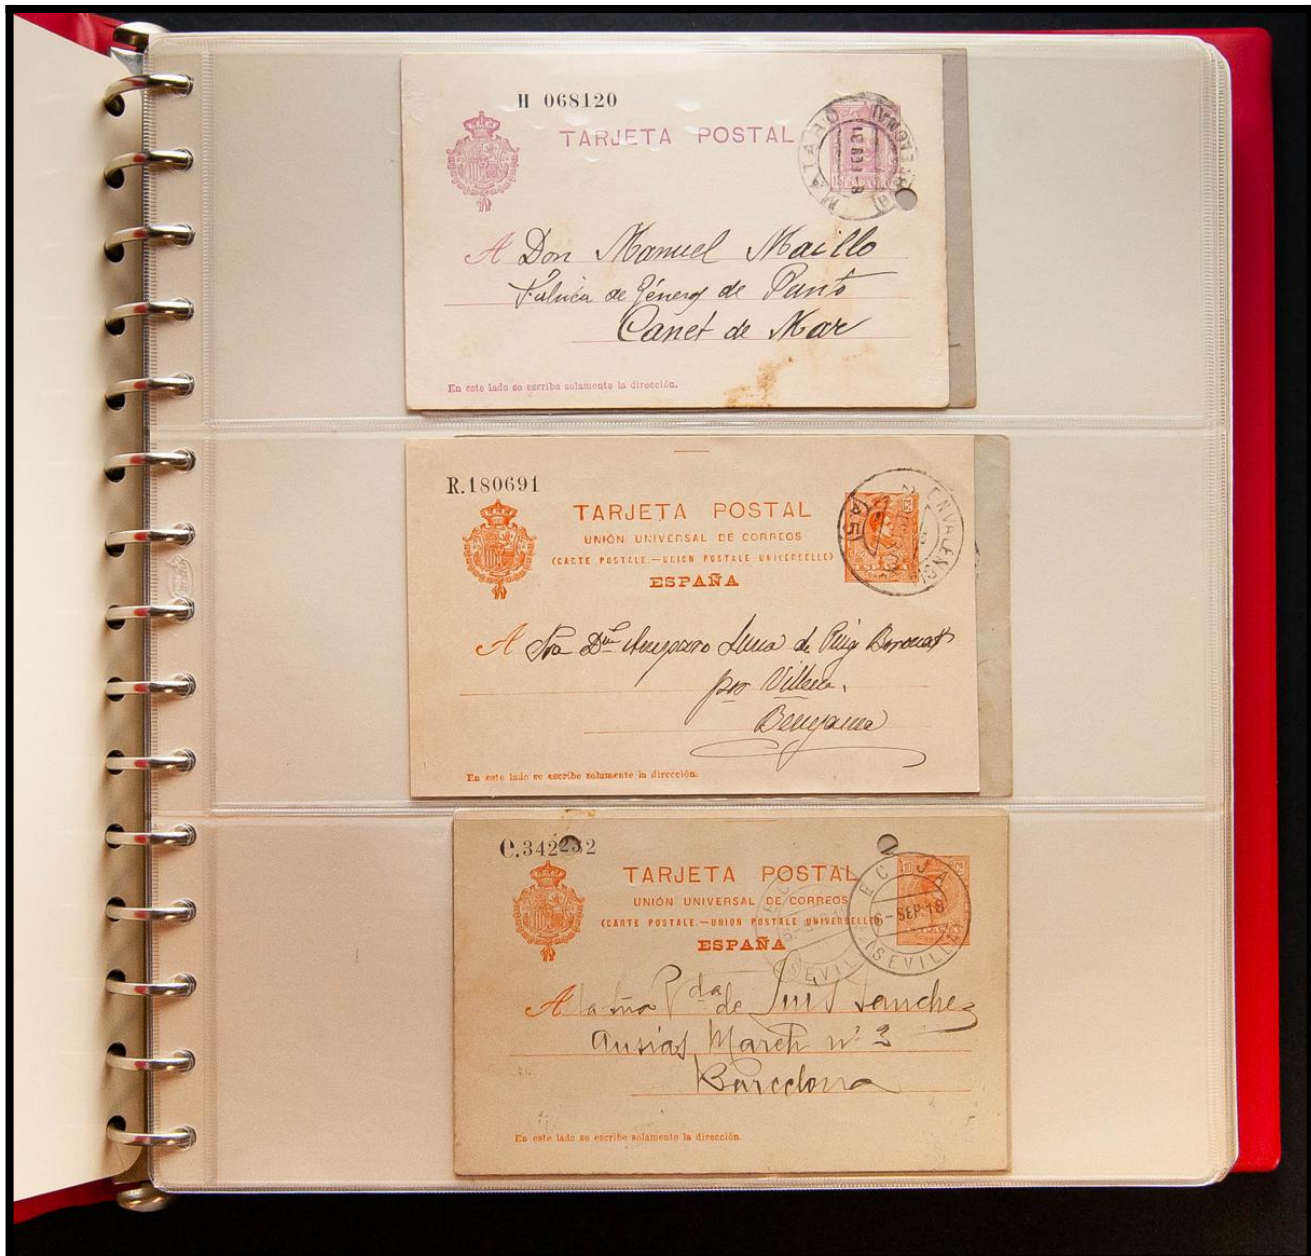 H 068120
TARJETA POSTAL
MATARÓ
(BARCELONA)
A Don Manuel Macillo
Fábrica de Géneros de Punto
Canet de Mar
En este lado se escribe solamente la dirección.
R.180691
TARJETA POSTAL
UNIÓN UNIVERSAL DE CORREOS
(CARTE POSTALE.—UNION POSTALE UNIVERSELLE)
ESPAÑA
A Sra Dña Amparo de Puig
por Villena.
Benejama
En este lado se escribe solamente la dirección.
C.342232
TARJETA POSTAL
UNIÓN UNIVERSAL DE CORREOS
(CARTE POSTALE.—UNION POSTALE UNIVERSELLE)
ESPAÑA
ECIJA
6-SEP.18
(SEVILLA)
A la Sra Vda de Luis Sanchez
Ausias March nº 3
Barcelona
En este lado se escribe solamente la dirección.